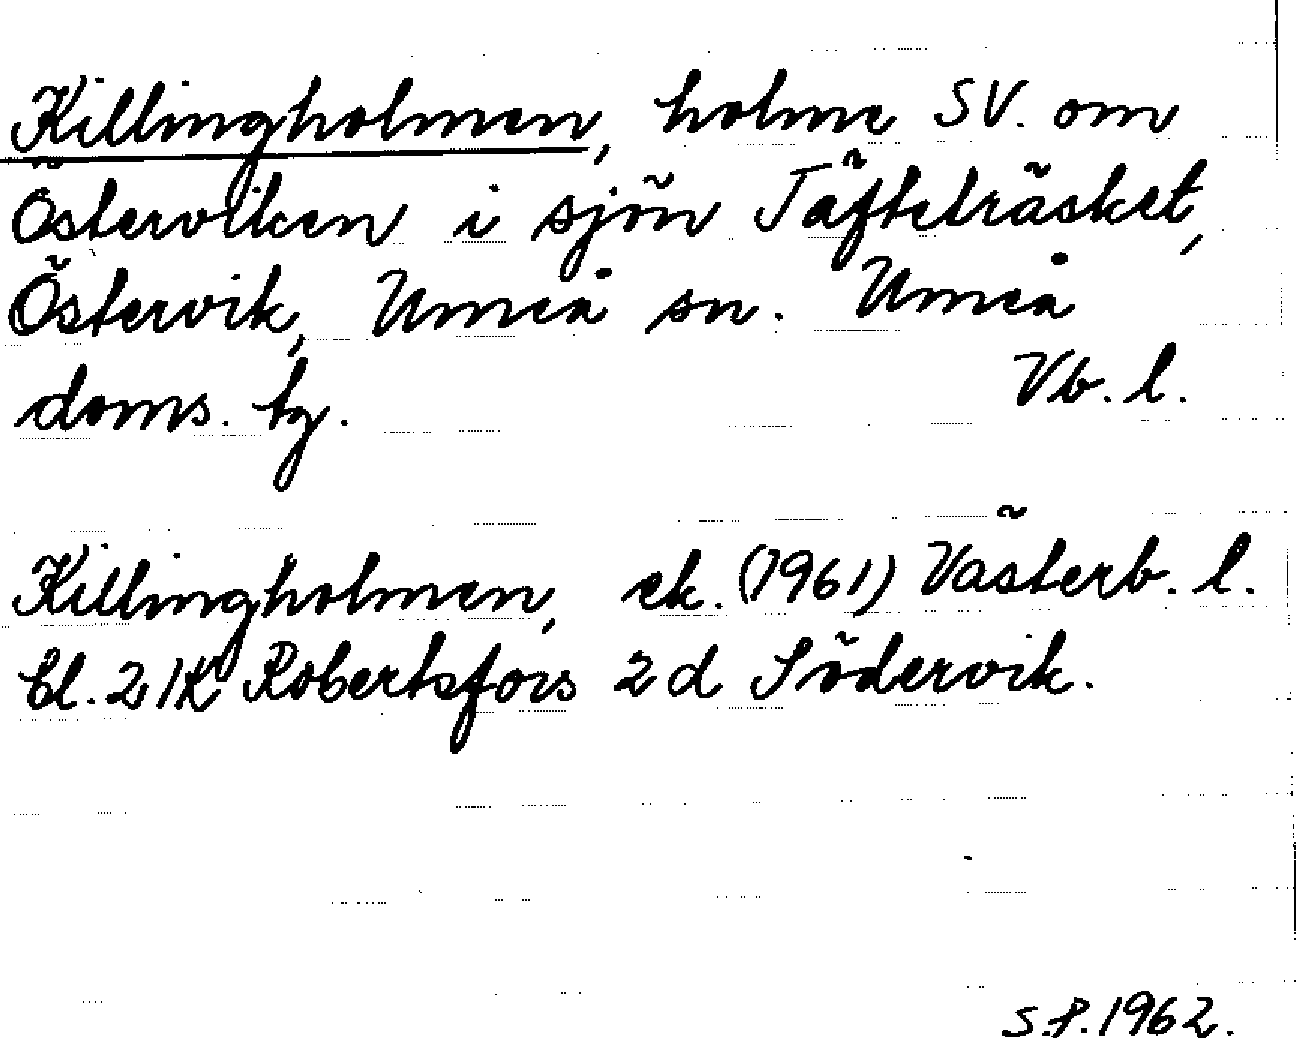 Killingholmen, holme SV. om
Österviken i sjön Täfteträsket,
Östervik, Umeå sn. Umeå
doms. tg. Vb. l.
Killingholmen, ek. (1961) Västerb. l.
bl. 21K Robertsfors 2d Södervik.
S.P. 1962.